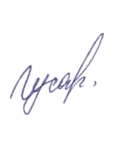 Гусар.